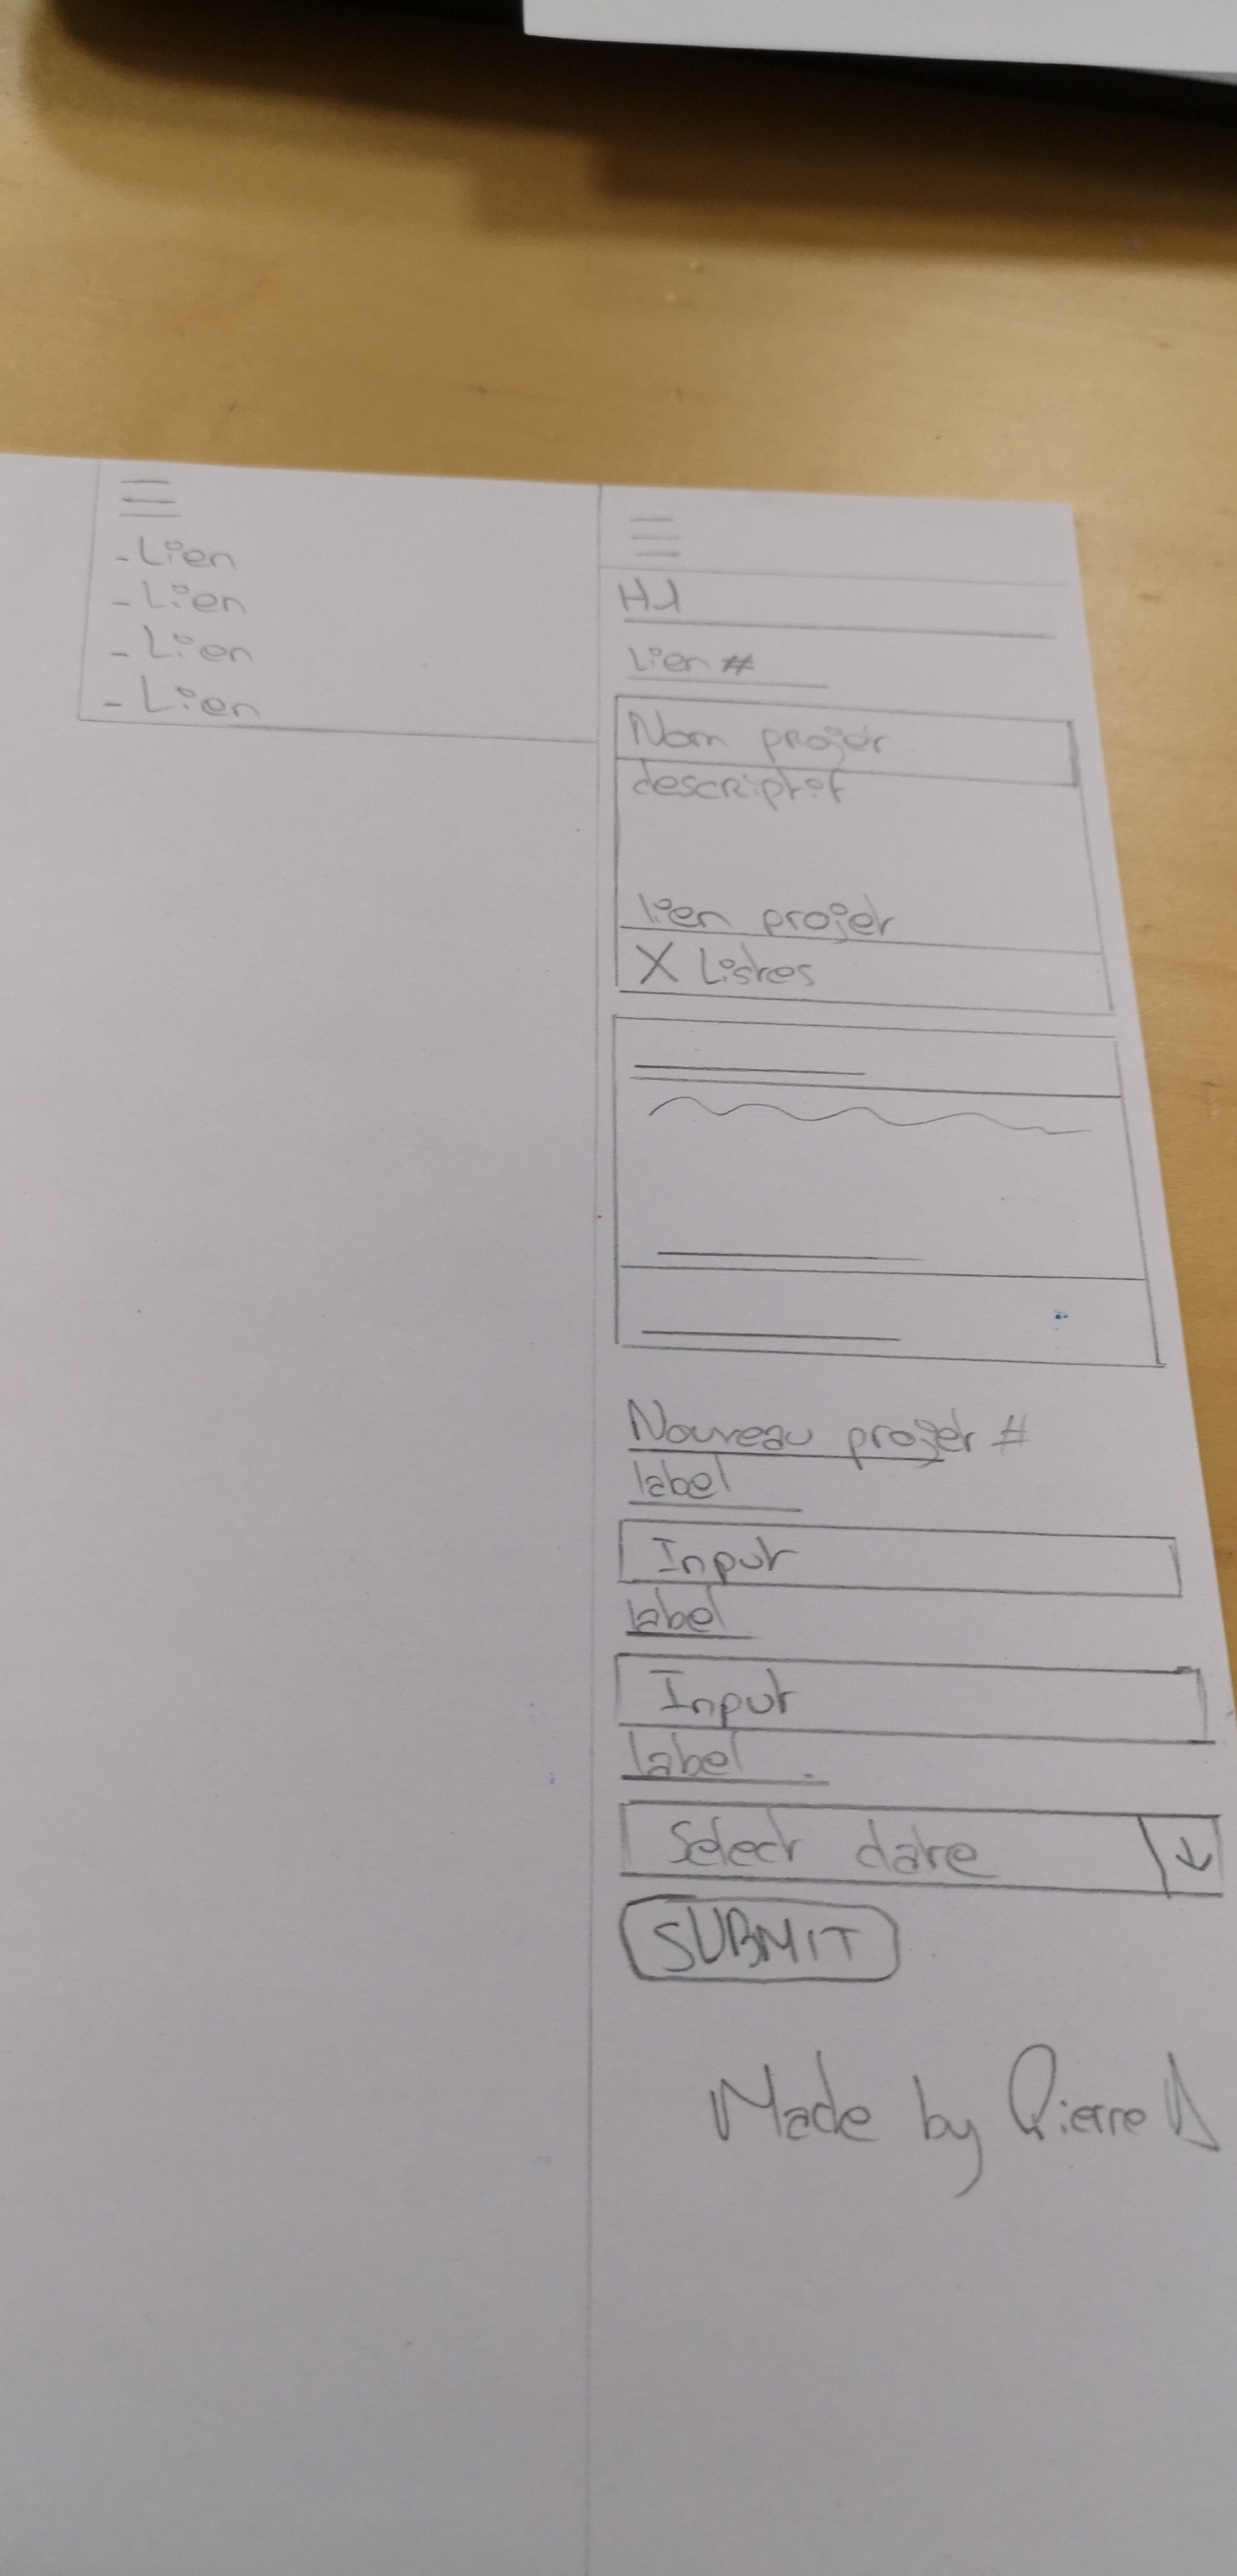 - Lien
- Lien
- Lien
- Lien
H1
Lien #
Nom projet
descriptif
lien projet
X Listes
Nouveau projet #
label
Input
label
Input
label
Select date
SUBMIT
Made by Pierre